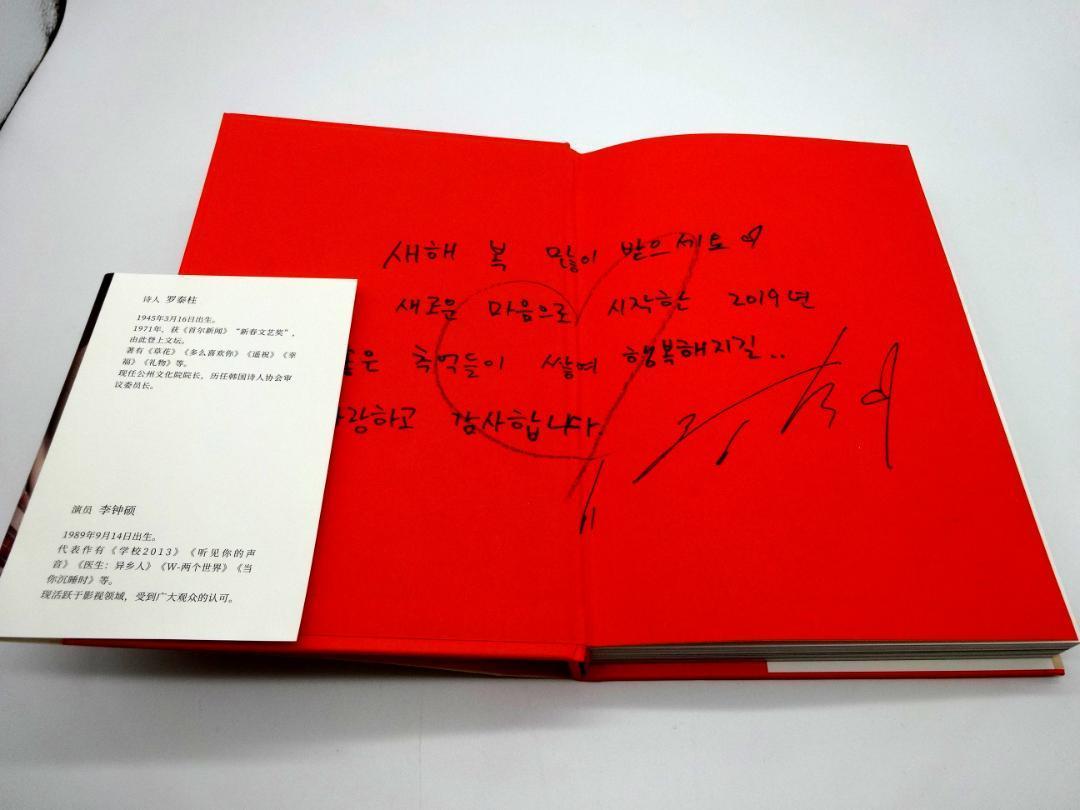 诗人 罗泰柱
1945年3月16日出生。
1971年，获《首尔新闻》“新春文艺奖”，
由此登上文坛。
著有《草花》《多么喜欢你》《遥祝》《幸
福》《礼物》等。
现任公州文化院院长，历任韩国诗人协会审
议委员长。
演员 李钟硕
1989年9月14日出生。
代表作有《学校2013》《听见你的声
音》《医生：异乡人》《W-两个世界》《当
你沉睡时》等。
现活跃于影视领域，受到广大观众的认可。
새해 복 많이 받으세요♡
새로운 마음으로 시작한 2019년
은 추억들이 쌓여 행복해지길..
랑하고 감사합니다.